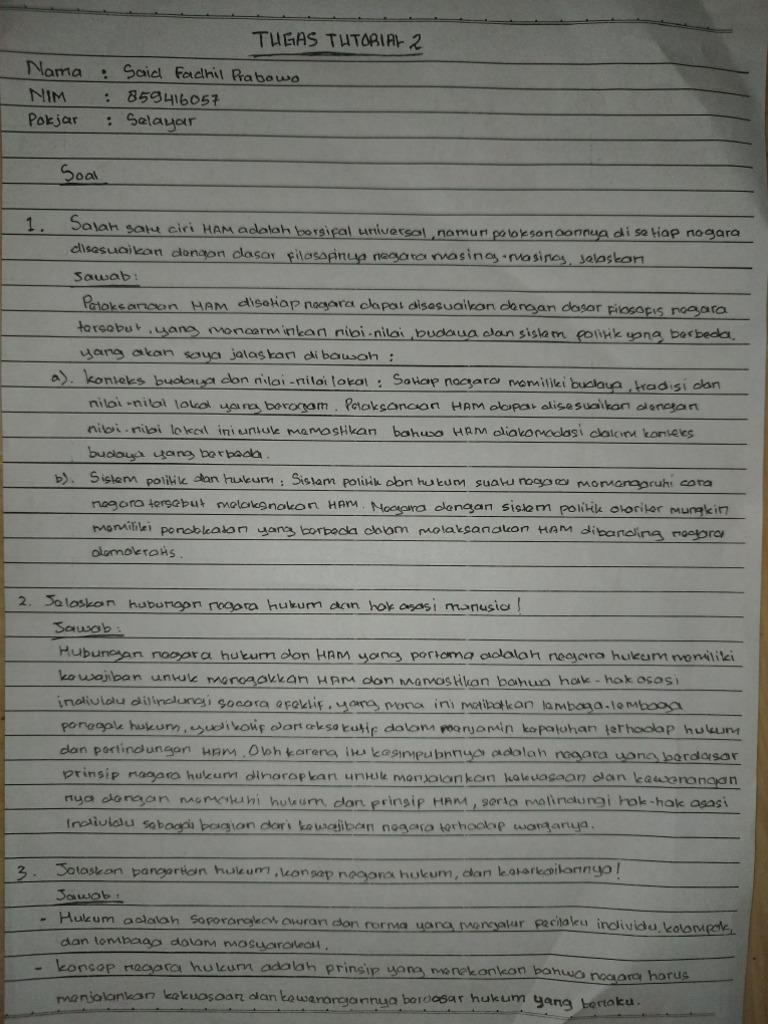 TUGAS TUTORIAL 2
Nama : Said Fadhil Prabowo
NIM : 859416057
Pokjar : Selayar
Soal
1. Salah satu ciri HAM adalah bersifat universal, namun pelaksanaannya di setiap negara
disesuaikan dengan dasar filosopinya negara masing-masing, jelaskan
Jawab:
Pelaksanaan HAM disetiap negara dapat disesuaikan dengan dasar filosofis negara
tersebut, yang mencerminkan nilai-nilai, budaya dan sistem politik yang berbeda.
yang akan saya jelaskan dibawah :
a). Konteks budaya dan nilai-nilai lokal : Setiap negara memiliki budaya, tradisi dan
nilai-nilai lokal yang beragam. Pelaksanaan HAM dapat disesuaikan dengan
nilai-nilai lokal ini untuk memastikan bahwa HAM diakomodasi dalam konteks
budaya yang berbeda.
b). Sistem politik dan hukum : Sistem politik dan hukum suatu negara memengaruhi cara
negara tersebut melaksnakan HAM. Negara dengan sistem politik otoriter mungkin
memiliki pendekatan yang berbeda dalam melaksanakan HAM dibanding negara
demokratis.
2. Jelaskan hubungan negara hukum dan hak asasi manusia!
Jawab :
Hubungan negara hukum dan HAM yang pertama adalah negara hukum memiliki
kewajiban untuk menegakkan HAM dan memastikan bahwa hak-hak asasi
individu dilindungi secara efektif, yang mana ini melibatkan lembaga-lembaga
penegak hukum, yudikatif dan eksekutif dalam menjamin kepatuhan terhadap hukum
dan perlindungan HAM. Oleh karena itu kesimpulannya adalah negara yang berdasar
prinsip negara hukum diharapkan untuk menjalankan kekuasaan dan kewenangan
nya dengan mematuhi hukum dan prinsip HAM, serta melindungi hak-hak asasi
individu sebagai bagian dari kewajiban negara terhadap warganya.
3. Jelaskan pengertian hukum, konsep negara hukum, dan keterkaitannya!
Jawab :
- Hukum adalah seperangkat aturan dan norma yang mengatur perilaku individu, kelompok,
dan lembaga dalam masyarakat.
- konsep negara hukum adalah prinsip yang menekankan bahwa negara harus
menjalankan kekuasaan dan kewenangannya berdasar hukum yang berlaku.